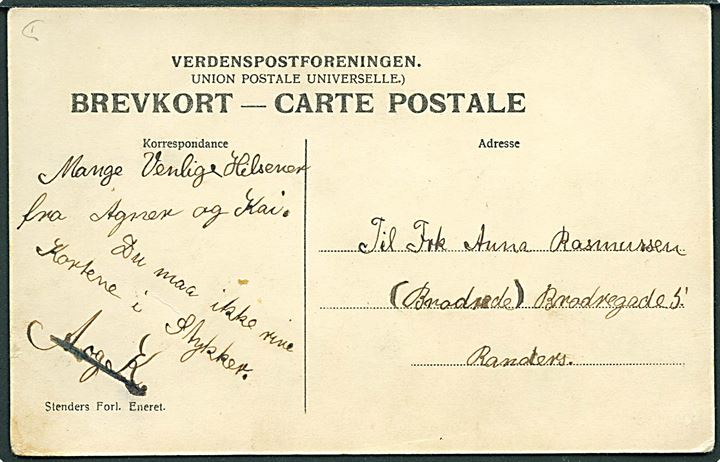 VERDENSPOSTFORENINGEN.
UNION POSTALE UNIVERSELLE.)
BREVKORT — CARTE POSTALE
Korrespondance
Mange Venlige Hilsener
fra Agner og Kai.
Du maa ikke rive
Kortene i Stykker.
A og K.
Stenders Forl. Eneret.
Adresse
Til Frk Anna Rasmussen
(Bradrede) Bradregade 5'
Randers.